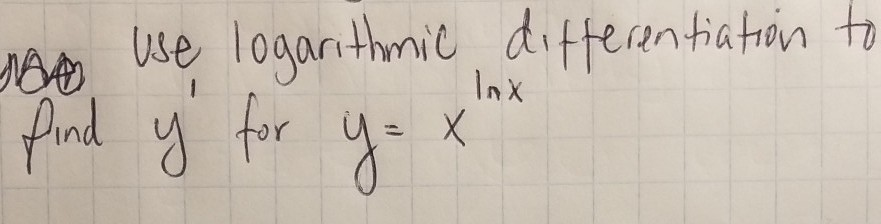 Use logarithmic differentiation to
find y' for y = x^ln x